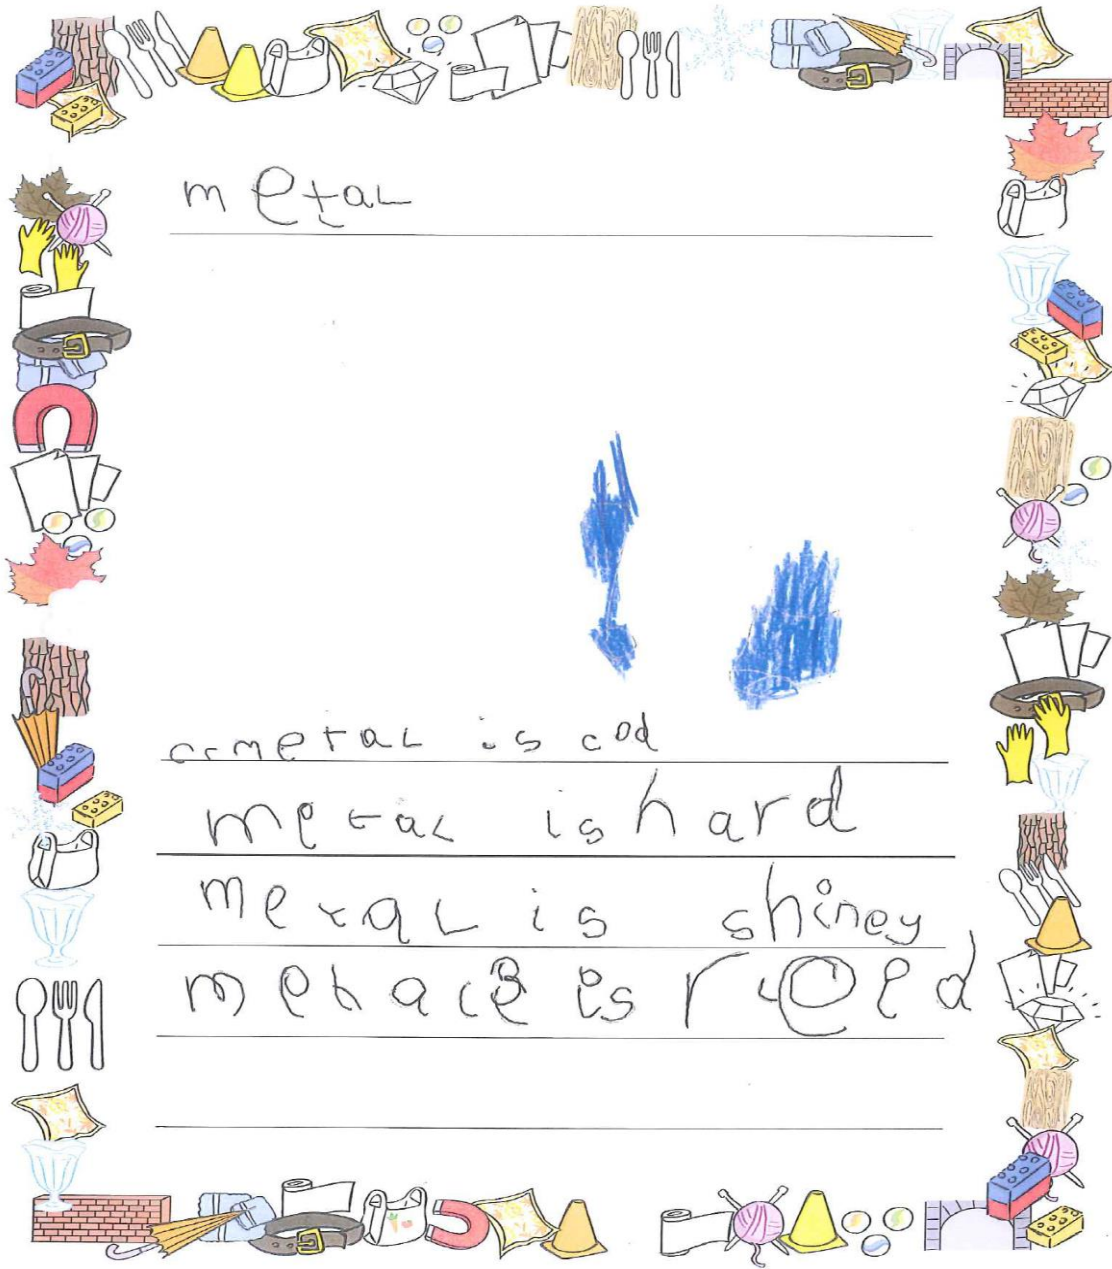 metal
metal is cod
metal is hard
metal is shiney
is